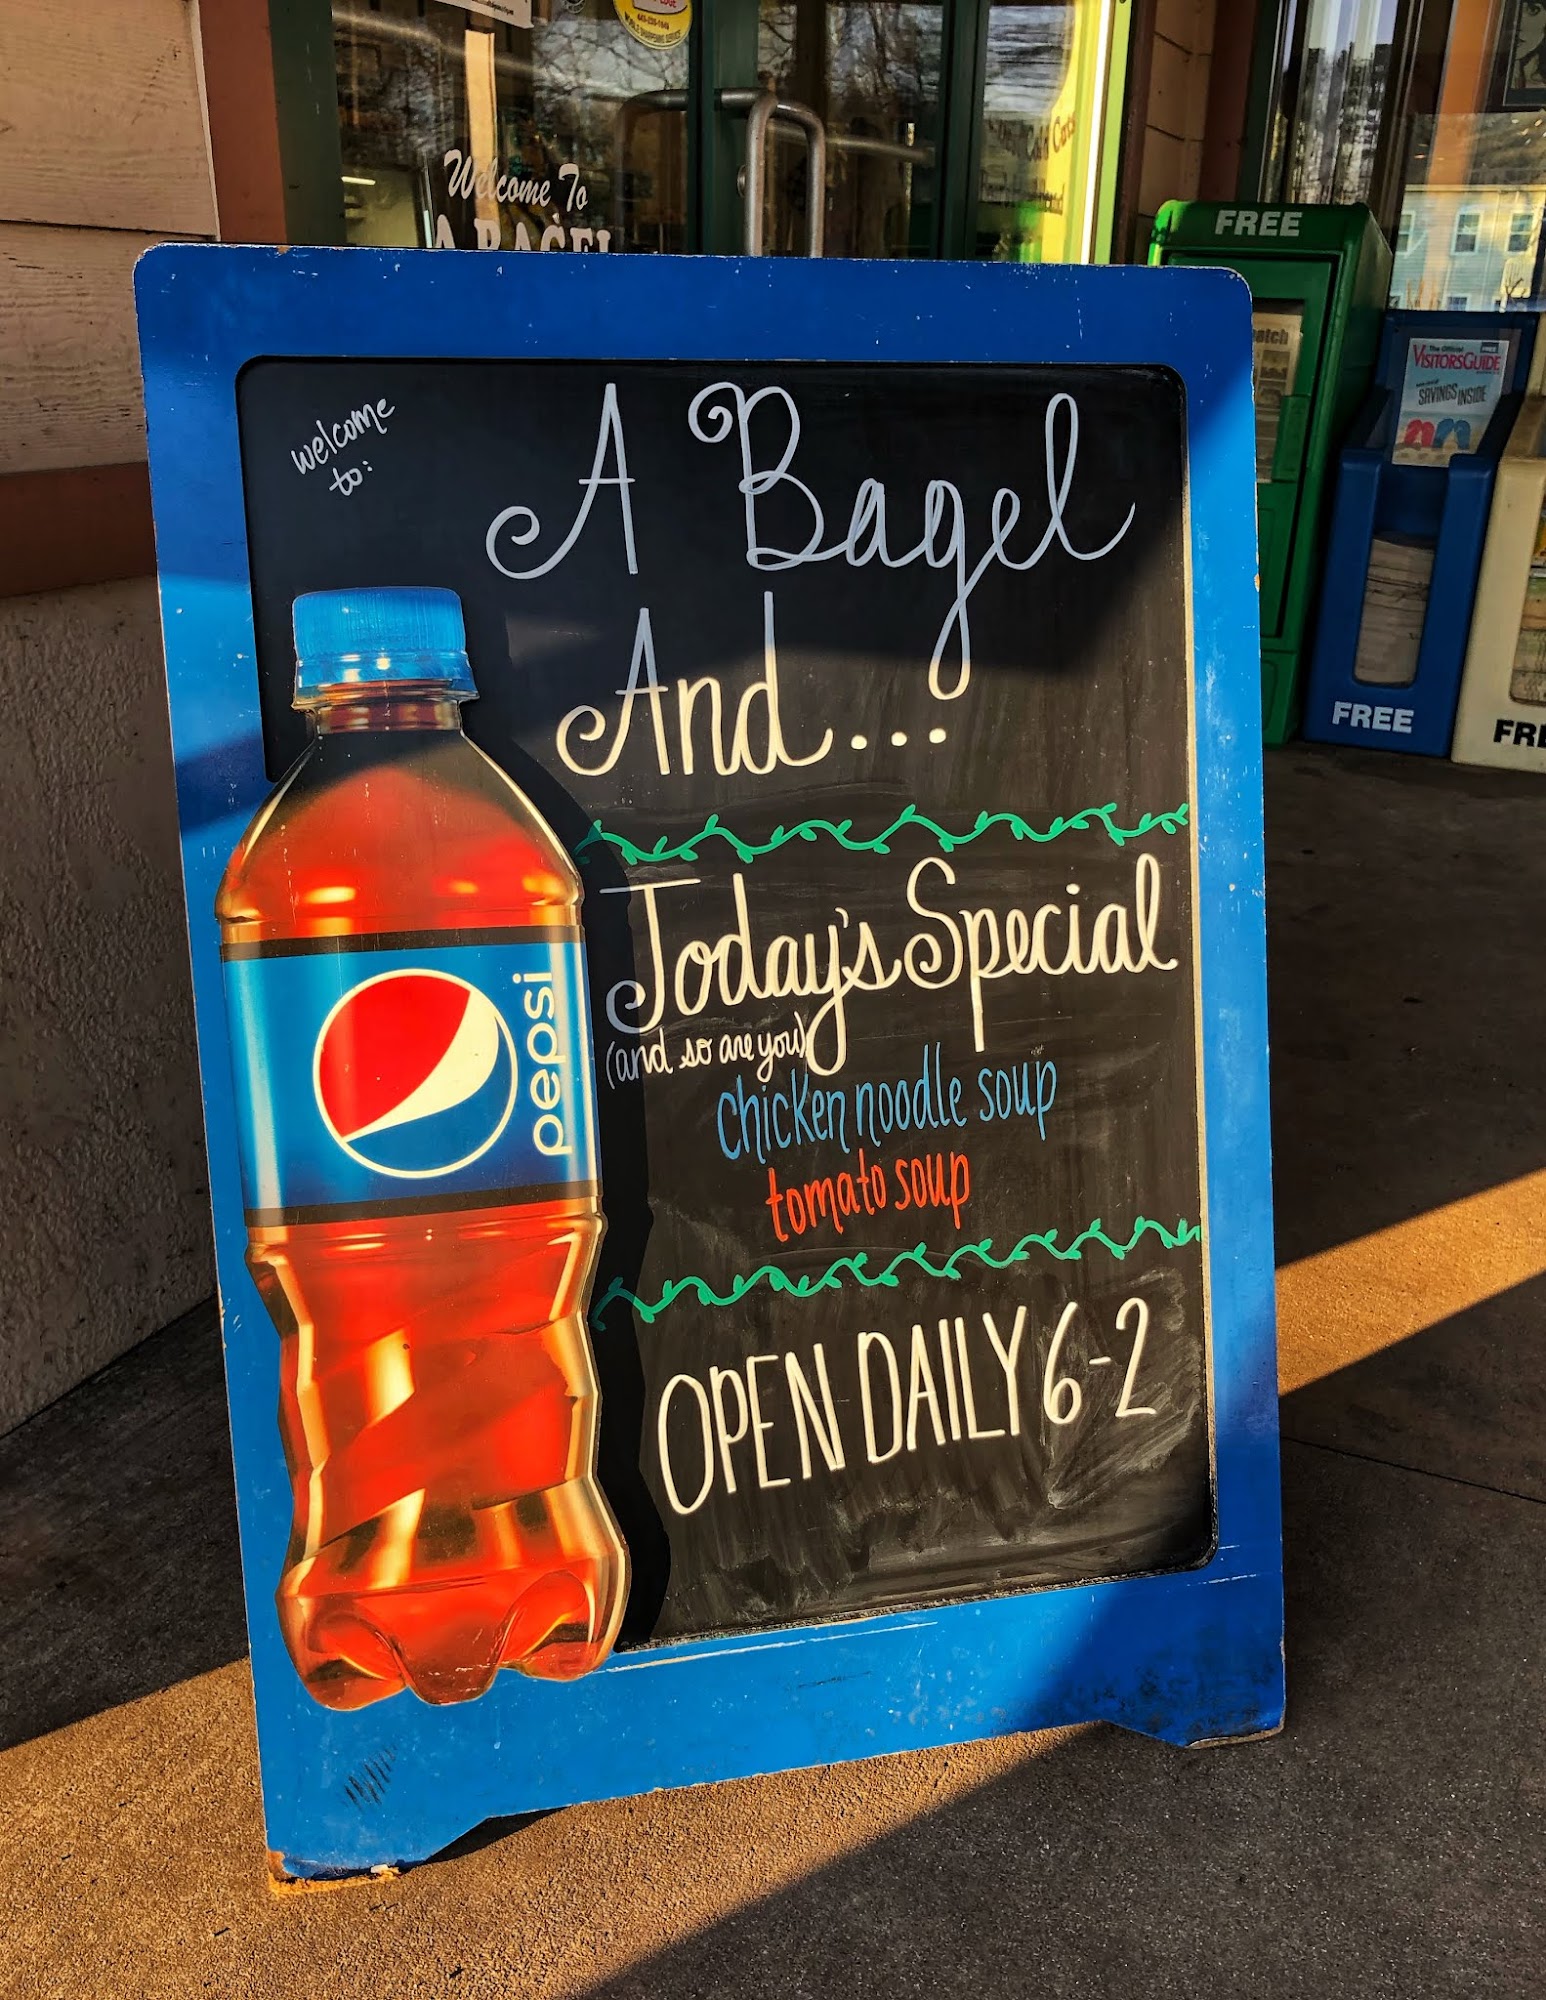 Welcome To
A BAGEL
FREE
The Official
FREE
VISITORS GUIDE
SAVINGS INSIDE
FREE
welcome
to:
A Bagel
And...
Today's Special
(and so are you)
chicken noodle soup
tomato soup
OPEN DAILY 6-2
pepsi